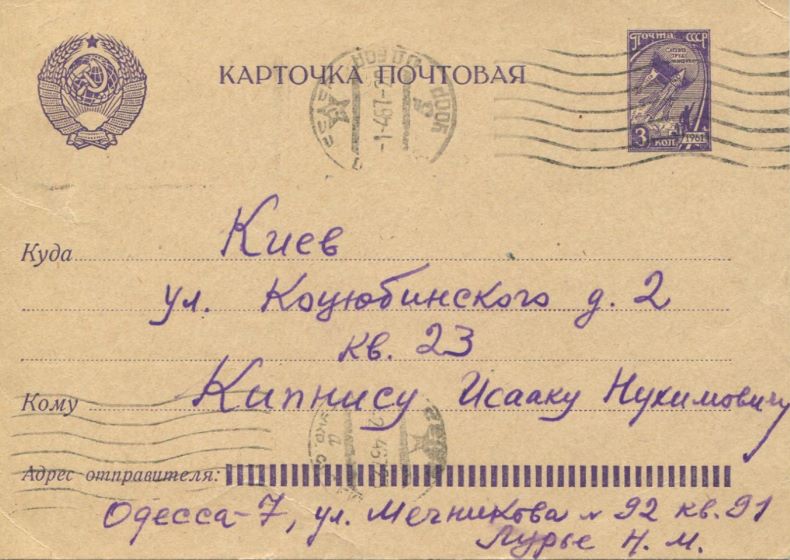 Почта СССР
КАРТОЧКА ПОЧТОВАЯ
3 коп 1961
Куда Киев
ул. Коцюбинского д. 2
кв. 23
Кому Кипнису Исааку Нухимовичу
Адрес отправителя:
Одесса-7, ул. Мечникова № 92 кв. 91
Лурье Н. М.